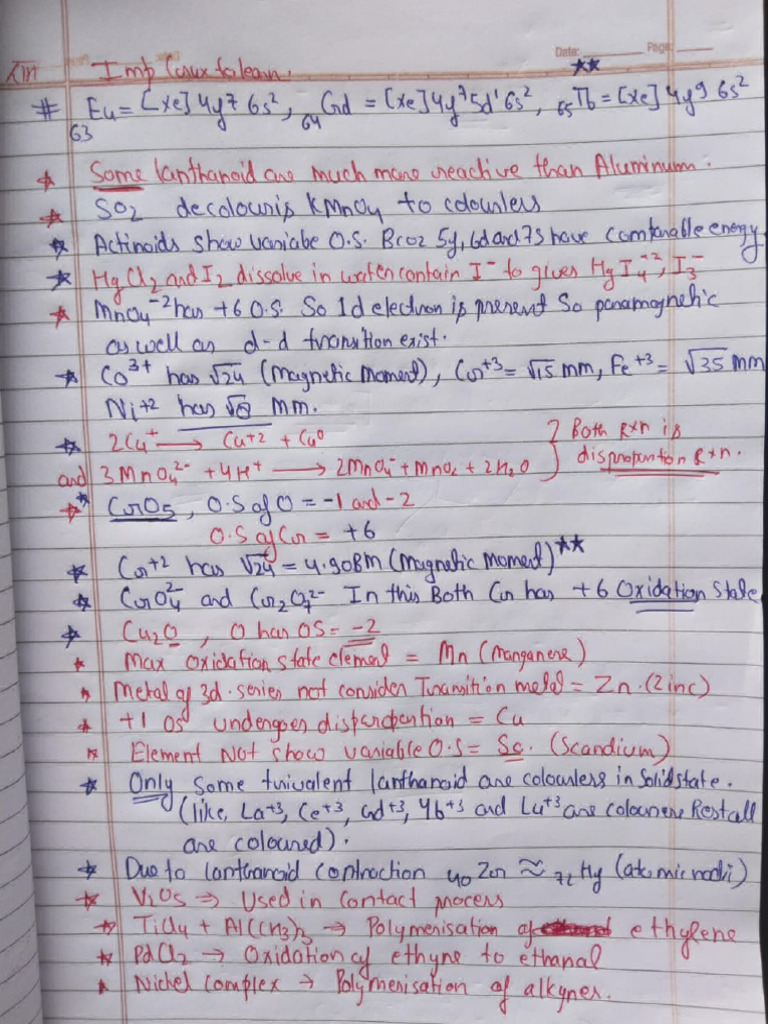 Date: Page:
Imp Crux to learn.
**
# 63Eu = [Xe] 4f7 6s², 64Gd = [Xe] 4f⁷5d¹6s², 65Tb = [Xe] 4f9 6s²
* Some lanthanoid are much more reactive than Aluminum.
* SO2 decolouris KMnO4 to colourless
* Actinoids show variabe O.S. Bcoz 5f, 6d and 7s have comparable energy
* HgCl2 and I2 dissolve in water contain I⁻ to gives HgI4⁻², I3⁻
* MnO4⁻² has +6 O.S. So 1 d electron is present So paramagnetic
as well as d-d transition exist.
* Co³⁺ has √24 (Magnetic Moment), Cr⁺³ = √15 mm, Fe⁺³ = √35 mm
Ni+2 has √8 mm.
* 2Cu⁺ → Cu+2 + Cu⁰ } Both Rxn is
and 3MnO4²⁻ + 4H⁺ → 2MnO4⁻ + MnO2 + 2H2O } disproportion Rxn.
* CrO5, O.S of O = -1 and -2
O.S of Cr = +6
* Cr+2 has √24 = 4.90BM (Magnetic Moment)**
* CrO4²⁻ and Cr2O7²⁻ In this Both Cr has +6 Oxidation State
* Cu2O, O has OS = -2
* Max Oxidation state element = Mn (Manganese)
* Metal of 3d-series not consider Transition metal = Zn. (Zinc)
* +1 OS undergoes disproportion = Cu
* Element Not show variable O.S = Sc. (Scandium)
* Only Some trivalent lanthanoid are colourless in Solid state.
(like, La⁺³, Ce⁺³, Gd⁺³, Yb⁺³ and Lu⁺³ are colourless Rest all
are coloured).
* Due to lanthanoid contraction 40Zr ≈ 72Hf (atomic radii)
* V2O5 ⇒ Used in Contact process
* TiCl4 + Al(CH3)3 → Polymerisation of ethylene
* PdCl2 → Oxidation of ethyne to ethanal
* Nickel complex → Polymerisation of alkynes.